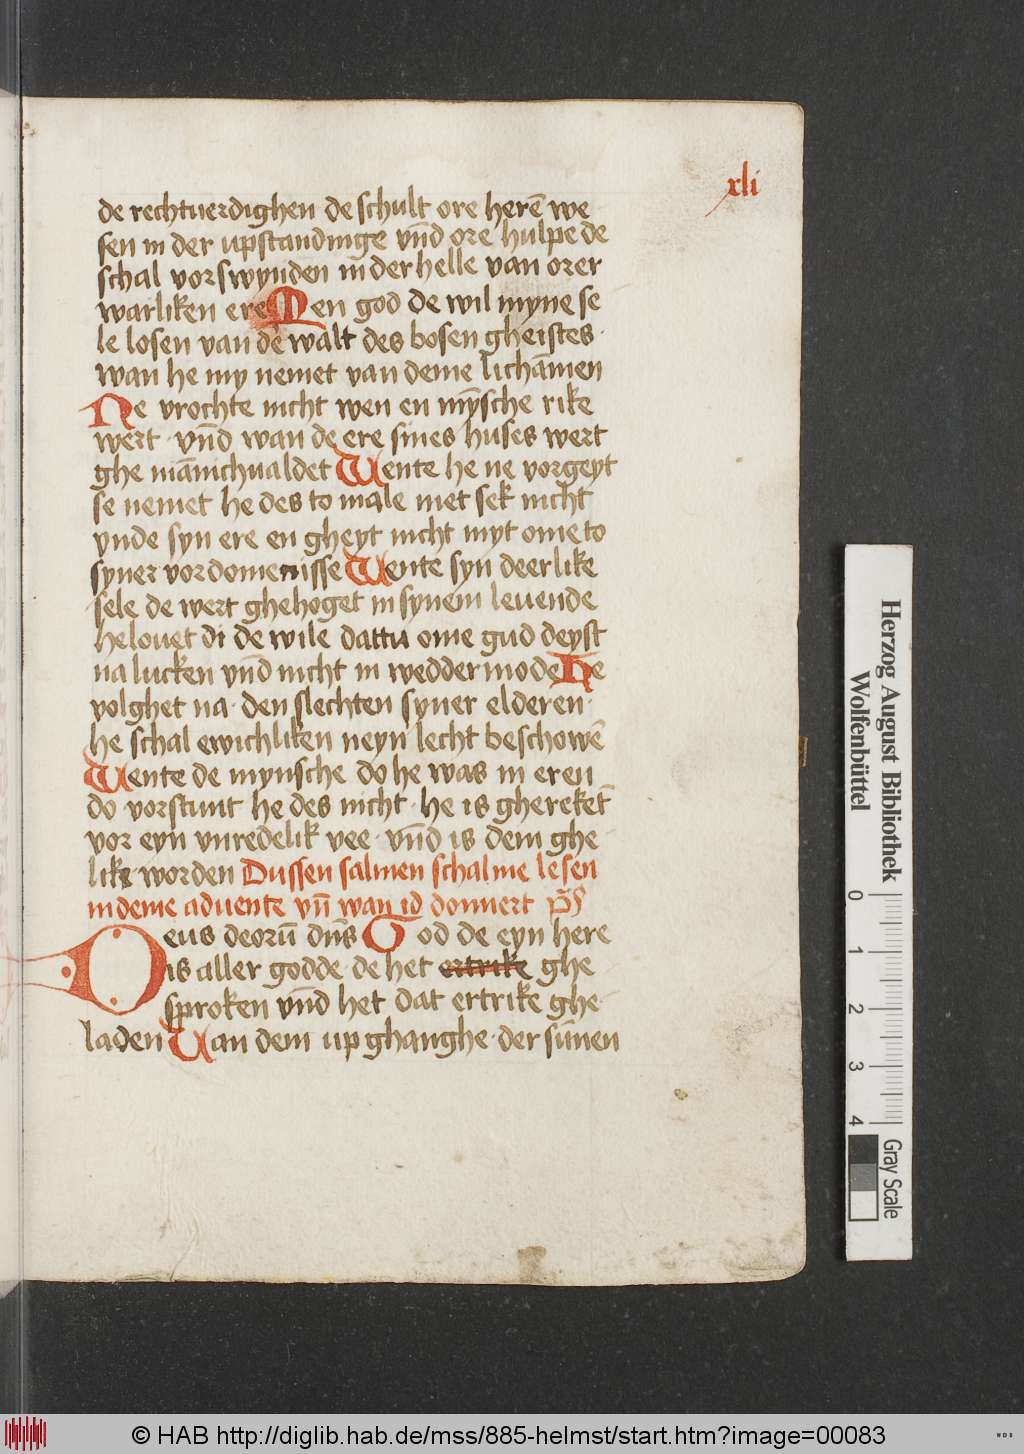 xli
de rechtuerdighen de schult ore herē we
sen in der upstandinge vn̄d ore hulpe de
schal vorswynden in der helle van orer
warliken ere Men god de wil myne se
le losen van de walt des bosen gheistes ·
wan he my nemet van deme lichāmen
Ne vrochte nicht wen en mȳsche rike
wert · vn̄d wan de ere sines huses wert
ghe mānichualdet Wente he ne vorgeyt
se nemet he des to male met sek nicht
vnde syn ere en gheyt nicht myt ome to
syner vordomenisse Wente syn deerlike
sele de wert ghehoget in synem leuende
he louet di de wile dattu ome gud deyst
na lucken vn̄d nicht in wedder mode He
volghet na · den slechten syner elderen ·
he schal ewichliken neyn lecht beschowē
Wente de mynsche do he was in eren
do vorstunt he des nicht · he is ghereket
vor eyn vnredelik vee · vn̄d is dem ghe
lik worden Dussen salmen schal me lesen
in deme aduente vn̄ wan id donnert p̄s
Deus deorū dn̄s God de eyn here
is aller godde · de het ertrike ghe
sproken vn̄d het dat ertrike ghe
laden Uan dem up ghanghe · der sūnen
Herzog August Bibliothek
Wolfenbüttel
0 1 2 3 4
Gray Scale
© HAB http://diglib.hab.de/mss/885-helmst/start.htm?image=00083
WDB